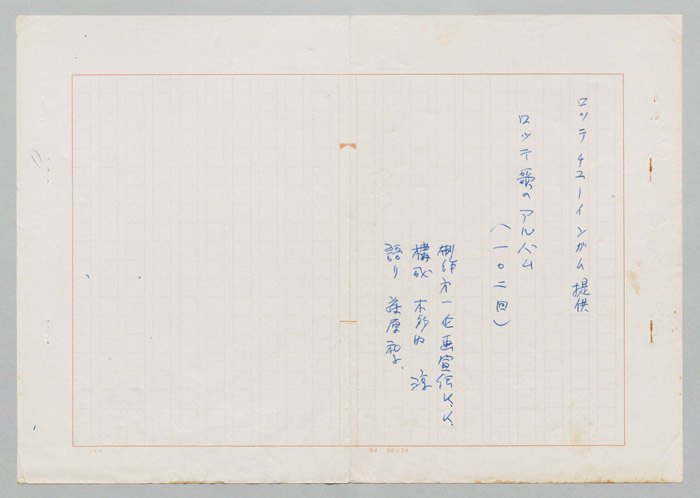 ロッテチューインガム提供
ロッテ歌のアルバム
(一〇二回)
制作 第一企画宣伝K.K.
構成 木多内 淳
語り 藤原